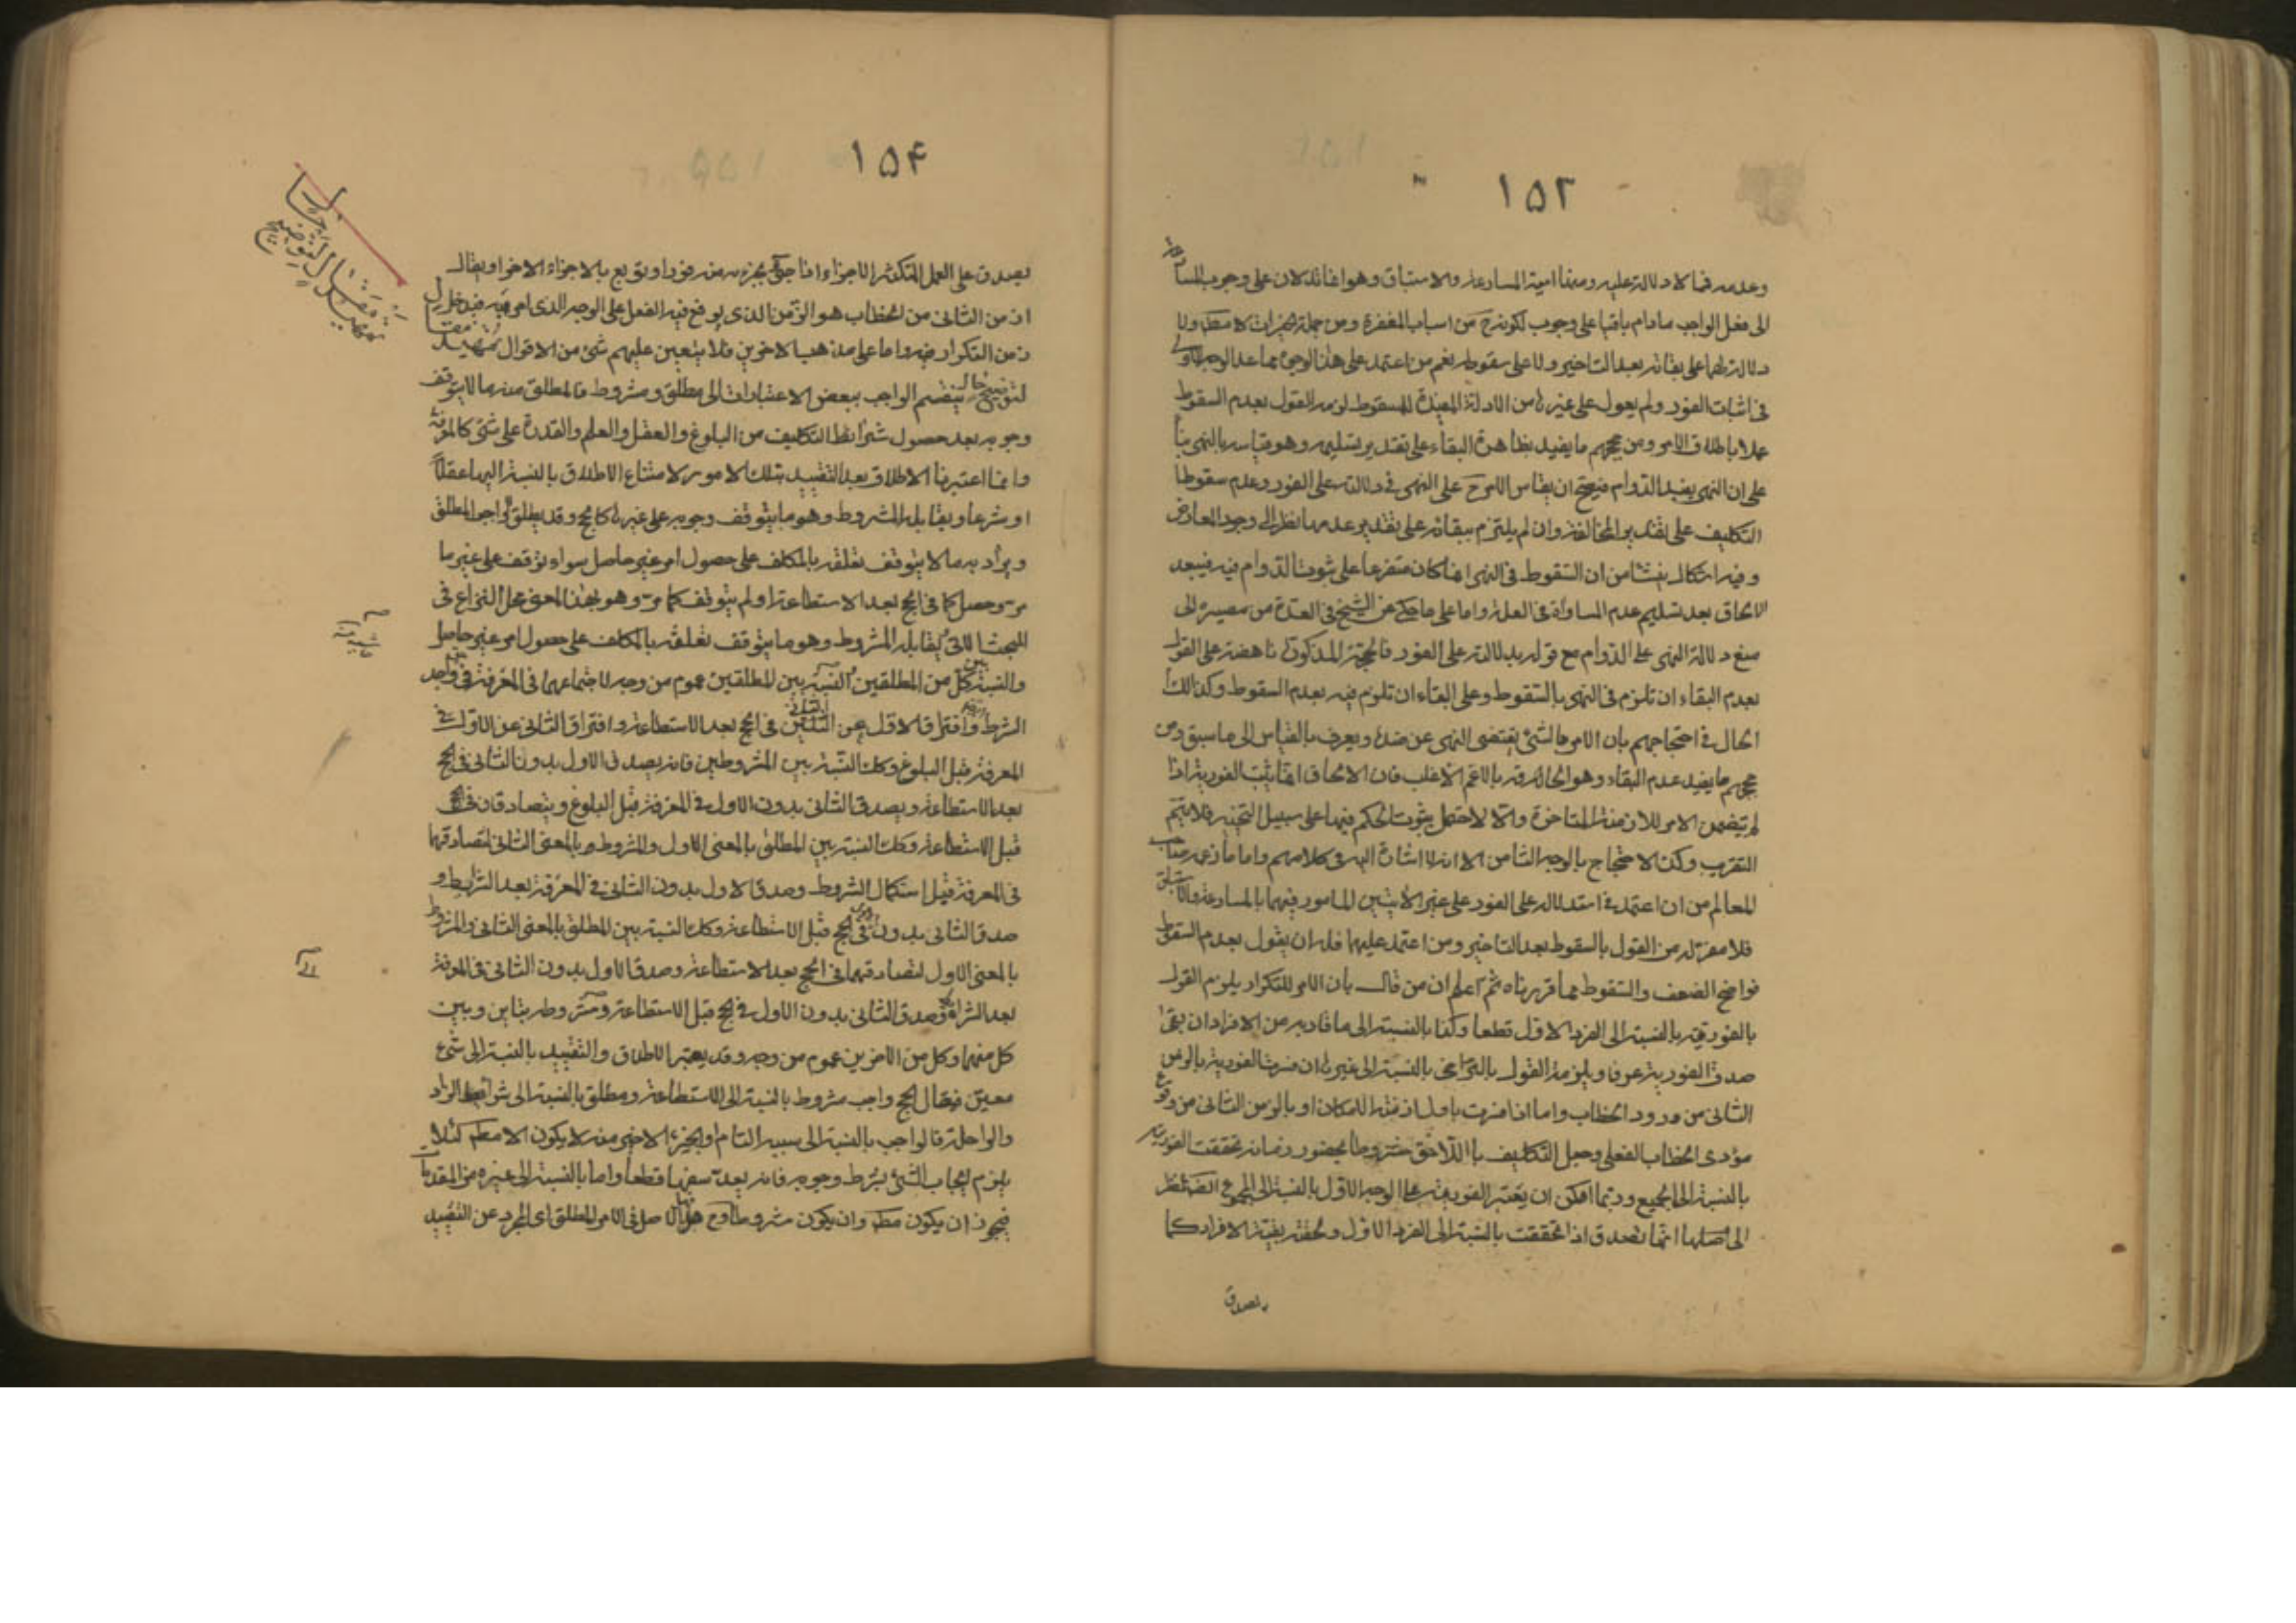 ١٥٢
وعدمه فما لا دلالة عليه ومنها اية المسارعة والاستباق وهو انما تدلان على وجوب المسا
الى فعل الواجب مادام باقيا على وجوب لكونه ح من اسباب المغفرة ومن جملة الخيرات لا مطم ولا
دلالة لهما على بقائه بعد التاخير ولا على سقوطه نعم من اعتمد على هذا الوجه مما عدا الوجه
فى اثبات الفور ولم يعول على غيرها من الادلة المفيدة للسقوط لزمه القول بعدم السقوط
عملا باطلاق الامر ومن حججهم ما يفيد بظاهره البقاء على تقدير تسليمه وهو قياسه بالنهى بنا
على ان النهى يفيد الدوام فيصح ان يقاس الامر ح على النهى فى دلالته على الفور وعدم سقوط
التكليف على تقدير المخالفة وان لم يلتزم ببقائه على تقدير عدمها نظرا الى وجود المعارض
وفيه اشكال ينشا من ان السقوط فى النهى انما كان متفرعا على ثبوت الدوام فيه فيبعد
الالحاق بعد تسليم عدم المساواة فى العلة واما على ما حكى عن الشيخ فى العدة من مصيره الى
منع دلالة النهى على الدوام مع قوله بدلالته على الفور فالحجة المذكورة ناهضة على القول
بعدم البقاء ان تلزم فى النهى بالسقوط وعلى البقاء ان تلزم فيه بعدم السقوط وكذا لك
الحال فى احتجاجهم بان الامر بالشئ يقتضى النهى عن ضده ويعرف بالقياس الى ما سبق ومن
حججهم ما يفيد عدم البقاء وهو الحاقه بالاعم الاغلب فان الالحاق انما يثبت الفورية اذا
لم يتضمن الامر للازمنة المتاخرة والا لاحتمل ثبوت الحكم فيها على سبيل التخيير فلا يتم
التقريب وكذا الاحتجاج بالوجه الثامن الا انه لا اشارة اليه فى كلامهم واما ما زعمه صاحب
المعالم من ان اعتمد فى استدلاله على الفور على غير الايتين المامور فيهما بالمسارعة والاستباق
فلا مفر له من القول بالسقوط بعد التاخير ومن اعتمد عليهما فله ان يقول بعدم السقوط
فواضح الضعف والسقوط مما قررناه ثم اعلم ان من قال بان الامر للتكرار يلزم القول
بالفورية بالنسبة الى الفرد الاول قطعا وكذا بالنسبة الى ما قاربه من الافراد ان بقى
صدق الفورية عرفا ويلزمه القول بالتراخى بالنسبة الى غيرها ان فسرت الفورية بالزمن
الثانى من ورود الخطاب واما اذا فسرت باول ازمنة الامكان او بالزمن الثانى من وقوع
مؤدى الخطاب الفعلى وجعل التكليف باللاحق مشروطا بحضور زمانه تحققت الفورية
بالنسبة الى الجميع وربما امكن ان يعتبر الفورية على الوجه الاول بالنسبة الى المجموع ايضا نظرا
الى اصلها انما تصدق اذا تحققت بالنسبة الى الفرد الاول وتحقق بقية الافراد كما
يصدق
١٥۴
يصدق على العمل المتكثر الاجزاء اذا جئ بجزء منه فورا وتوبع بالاجزاء الاخر او يقال
ان من الثانى من الخطاب هو الزمن الذى يوقع فيه الفعل على الوجه الذى امر فيه فيدخل
زمن التكرار فيه واما على مذهب الاخرين فلا يتعين عليهم شئ من الاقوال تمهيد مقال
لتوضيح حال ينقسم الواجب ببعض الاعتبارات الى مطلق ومشروط فالمطلق منه ما لا يتوقف
وجوبه بعد حصول شرائط التكليف من البلوغ والعقل والعلم والقدرة على شئ كالمعرفة
وانما اعتبرنا الاطلاق بعد التقييد بتلك الامور لامتناع الاطلاق بالنسبة اليها عقلا
او شرعا ويقابله المشروط وهو ما يتوقف وجوبه على غيرها كالحج وقد يطلق الواجب المطلق
ويراد به ما لا يتوقف تعلقه بالمكلف على حصول امر غير حاصل سواء توقف على غير ما
مر وحصل كما فى الحج بعد الاستطاعة او لم يتوقف كما مر وهو بهذا المعنى محل النزاع فى
المبحث الاتى يقابله المشروط وهو ما يتوقف تعلقه بالمكلف على حصول امر غير حاصل
والنسبة بين كل من المطلقين النسبة بين المطلقين عموم من وجه لاجتماعهما فى المعرفة فى واجد
الشرط وافتراق الاول عن الثانى فى الحج بعد الاستطاعة وافتراق الثانى عن الاول فى
المعرفة قبل البلوغ وكك النسبة بين المشروطين فانه يصدق الاول بدون الثانى فى الحج
بعد الاستطاعة ويصدق الثانى بدون الاول فى المعرفة قبل البلوغ ويتصادقان فى الحج
قبل الاستطاعة وكك النسبة بين المطلق بالمعنى الاول والمشروط بالمعنى الثانى لتصادقهما
فى المعرفة قبل استكمال الشروط وصدق الاول بدون الثانى فى المعرفة بعد الشرايط و
صدق الثانى بدون الاول فى الحج قبل الاستطاعة وكك النسبة بين المطلق بالمعنى الثانى والمشروط
بالمعنى الاول لتصادقهما فى الحج بعد الاستطاعة وصدق الاول بدون الثانى فى المعرفة
بعد الشرائط وصدق الثانى بدون الاول فى الحج قبل الاستطاعة ومشروطه بتاين وبين
كل منهما وكل من الاخرين عموم من وجه وقد يعتبر الاطلاق والتقييد بالنسبة الى شئ
معين فيقال الحج واجب مشروط بالنسبة الى الاستطاعة ومطلق بالنسبة الى شرائط الزاد
والراحلة فالواجب بالنسبة الى سببه التام او الجزء الاخير منه لا يكون الا مطم لئلا
يلزم ايجاب الشئ بشرط وجوبه فانه يعد سفها قطعا واما بالنسبة الى غيره من المقدمات
فيجوز ان يكون مطم وان يكون مشروطا وح فهل الاصل فى الامر المطلق اى المجرد عن التقييد